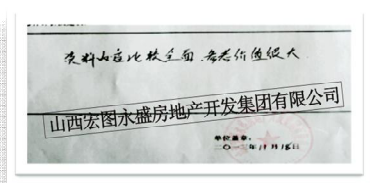 资料内容比较全面，参考价值很大
山西宏图永盛房地产开发集团有限公司
单位盖章：
二〇一二年11月18日